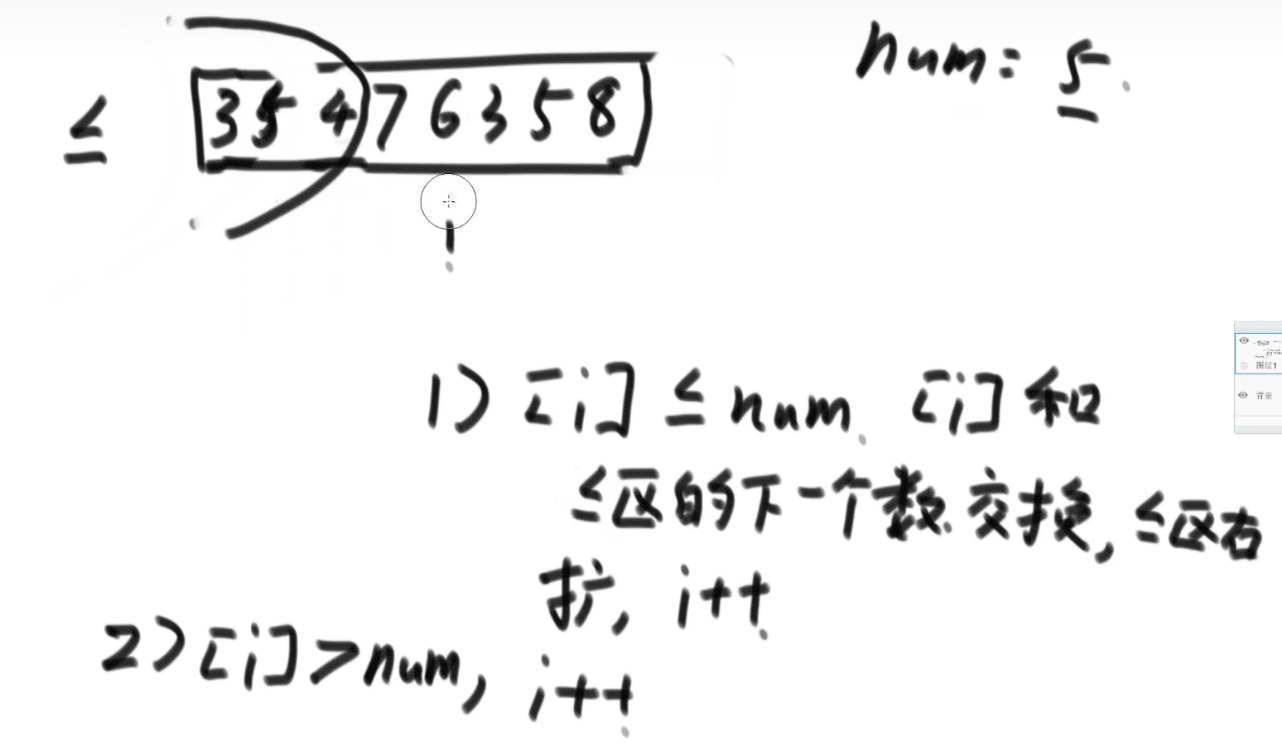 num = 5
≤ 3 5 4 7 6 3 5 8
i
1) [i] ≤ num [i] 和
≤区的下一个数交换, ≤区右
扩, i++
2) [i] > num, i++
图层1
背景